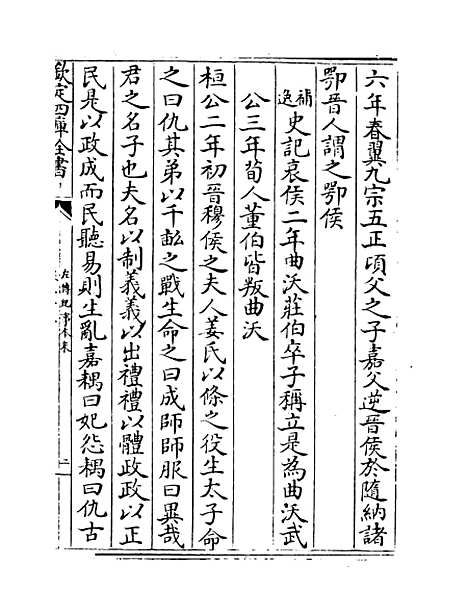 六年春翼九宗五正頃父之子嘉父逆晉侯於隨納諸
鄂晉人謂之鄂侯
補逸史記哀侯二年曲沃莊伯卒子稱立是為曲沃武
公三年荀人董伯皆叛曲沃
桓公二年初晉穆侯之夫人姜氏以條之役生太子命
之曰仇其弟以千畝之戰生命之曰成師師服曰異哉
君之名子也夫名以制義義以出禮禮以體政政以正
民是以政成而民聽易則生亂嘉耦曰妃怨耦曰仇古
欽定四庫全書
左傳紀事本末
二